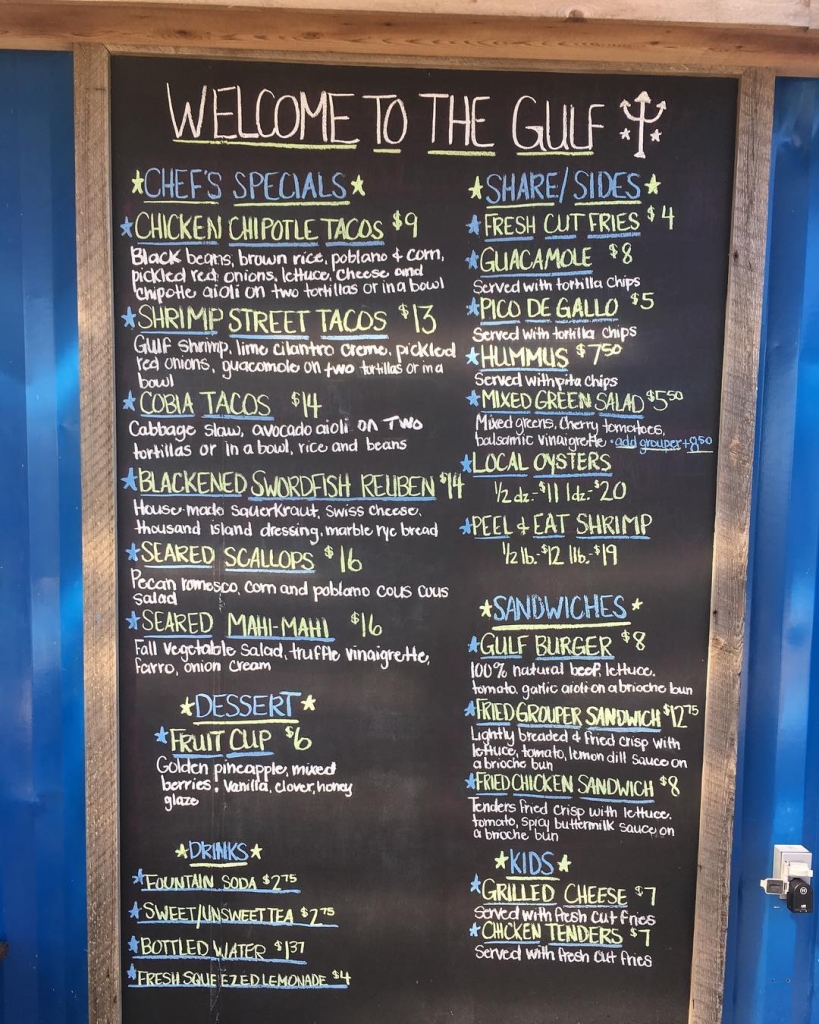 WELCOME TO THE GULF
CHEF'S SPECIALS
CHICKEN CHIPOTLE TACOS $9
Black beans, brown rice, poblano & corn,
pickled red onions, lettuce, cheese and
chipotle aioli on two tortillas or in a bowl
SHRIMP STREET TACOS $13
Gulf shrimp, lime cilantro creme, pickled
red onions, guacomole on two tortillas or in a
bowl
COBIA TACOS $14
Cabbage slaw, avocado aioli on TWO
tortillas or in a bowl, rice and beans
BLACKENED SWORDFISH REUBEN $14
House-made sauerkraut, swiss cheese,
thousand island dressing, marble rye bread
SEARED SCALLOPS $16
Pecan romesco, corn and poblano cous cous
salad
SEARED MAHI-MAHI $16
Fall vegetable salad, truffle vinaigrette,
farro, onion cream
DESSERT
FRUIT CUP $6
Golden pineapple, mixed
berries, vanilla, clover, honey
glaze
DRINKS
FOUNTAIN SODA $2.75
SWEET/UNSWEET TEA $2.75
BOTTLED WATER $1.37
FRESH SQUEEZED LEMONADE $4
SHARE/SIDES
FRESH CUT FRIES $4
GUACAMOLE $8
Served with tortilla chips
PICO DE GALLO $5
Served with tortilla chips
HUMMUS $7.50
Served with pita chips
MIXED GREEN SALAD $5.50
Mixed greens, cherry tomatoes,
balsamic vinaigrette • add grouper +8.50
LOCAL OYSTERS
1/2 dz.-$11 1dz.-$20
PEEL & EAT SHRIMP
1/2 lb.-$12 1lb.-$19
SANDWICHES
GULF BURGER $8
100% natural beef, lettuce,
tomato, garlic aioli on a brioche bun
FRIED GROUPER SANDWICH $12.75
Lightly breaded & fried crisp with
lettuce, tomato, lemon dill sauce on
a brioche bun
FRIED CHICKEN SANDWICH $8
Tenders fried crisp with lettuce,
tomato, spicy buttermilk sauce on
a brioche bun
KIDS
GRILLED CHEESE $7
Served with fresh cut fries
CHICKEN TENDERS $7
Served with fresh cut fries